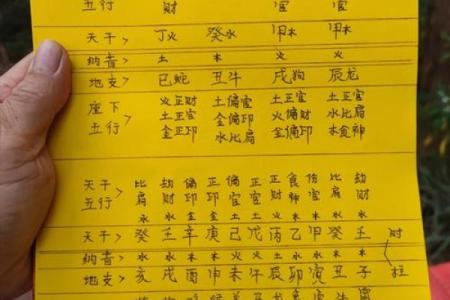 五行> 财 官 官
天干> 丁火 癸水 甲木 甲木
纳音> 土 木 火 火
地支> 已蛇 丑牛 戌狗 辰龙
座下 火正财 土偏官 土正官 土正官
五行> 土正官 金偏印 火偏财 水比肩
金正印 水比肩 金偏印 木食神
天干 比 劫 偏 正 偏 正 正 食 伤 比 劫
五行> 肩 财 印 印 官 官 财 神 官 肩 财
水 水 金 金 土 土 火 木 木 水 水
天干> 癸 壬 辛 庚 己 戊 丙 乙 甲 癸 壬 时
纳音> 水 水 木 木 火 火 土 水 水 木 木
地支> 亥 戌 酉 申 未 午 辰 卯 寅 丑 子 柱